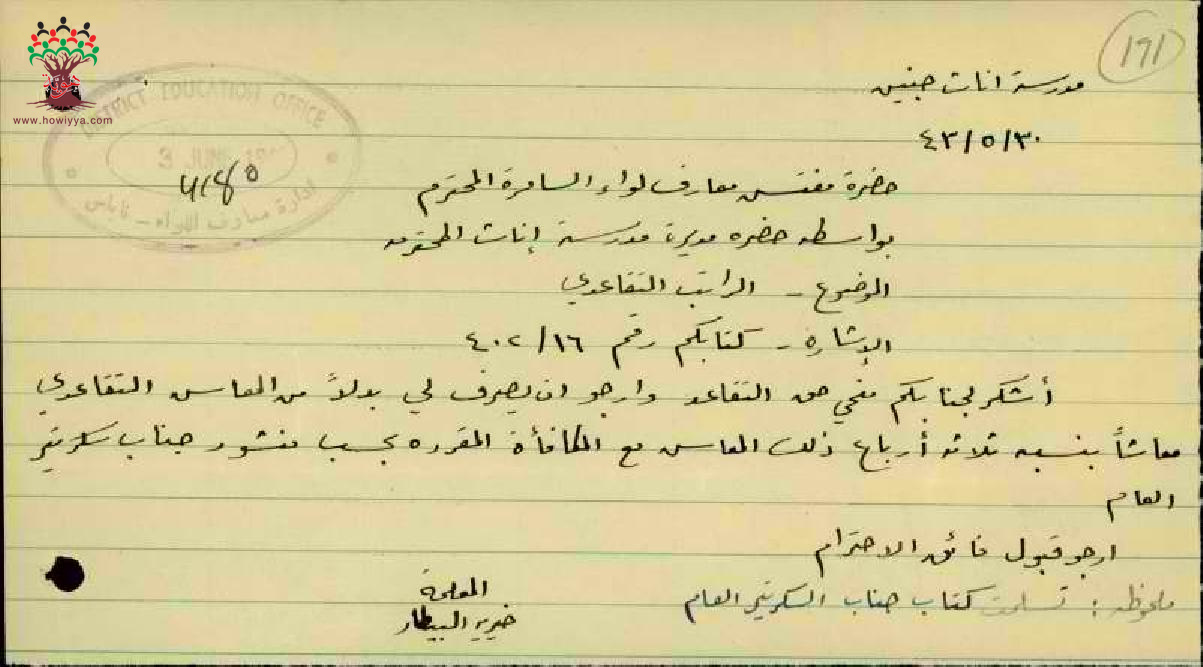 ١٩١
مدرسة اناث جنين
٤٣/٥/٣٠
حضرة مفتش معارف لواء السامرة المحترم
بواسطه حضره مديرة مدرسة إناث المحترمه
الموضوع - الراتب التقاعدي
الإشاره - كتابكم رقم ٤٠٢/١٦
أشكر لجنابكم منحي حق التقاعد وارجو ان يصرف لي بدلاً من المعاش التقاعدي
معاشاً بنسبه ثلاثه أرباع ذلك المعاش مع المكافأة المقرره بحسب منشور جناب سكرتير
العام
ارجو قبول فائق الاحترام
ملحوظه : تسلمت كتاب جناب السكرتير العام
المعلمة
خيريه البيطار
DISTRICT EDUCATION OFFICE
3 JUNE
ادارة معارف اللواء - نابلس
www.howiyya.com